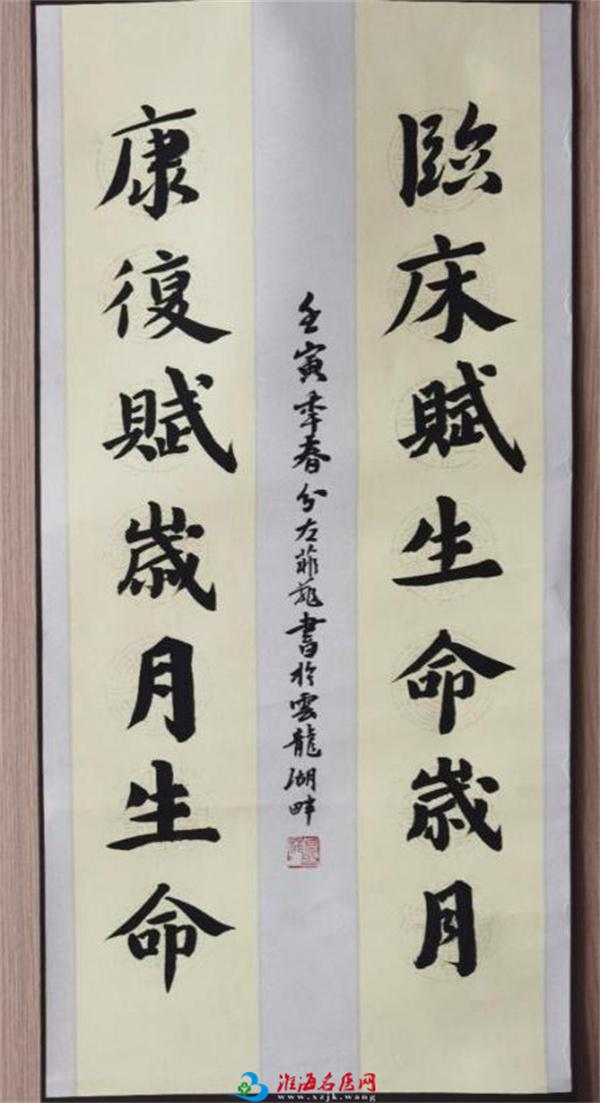 臨床賦生命歲月
康復賦歲月生命
壬寅季春分左菲龍書於雲龍湖畔
淮海名医网
www.xzjk.wang